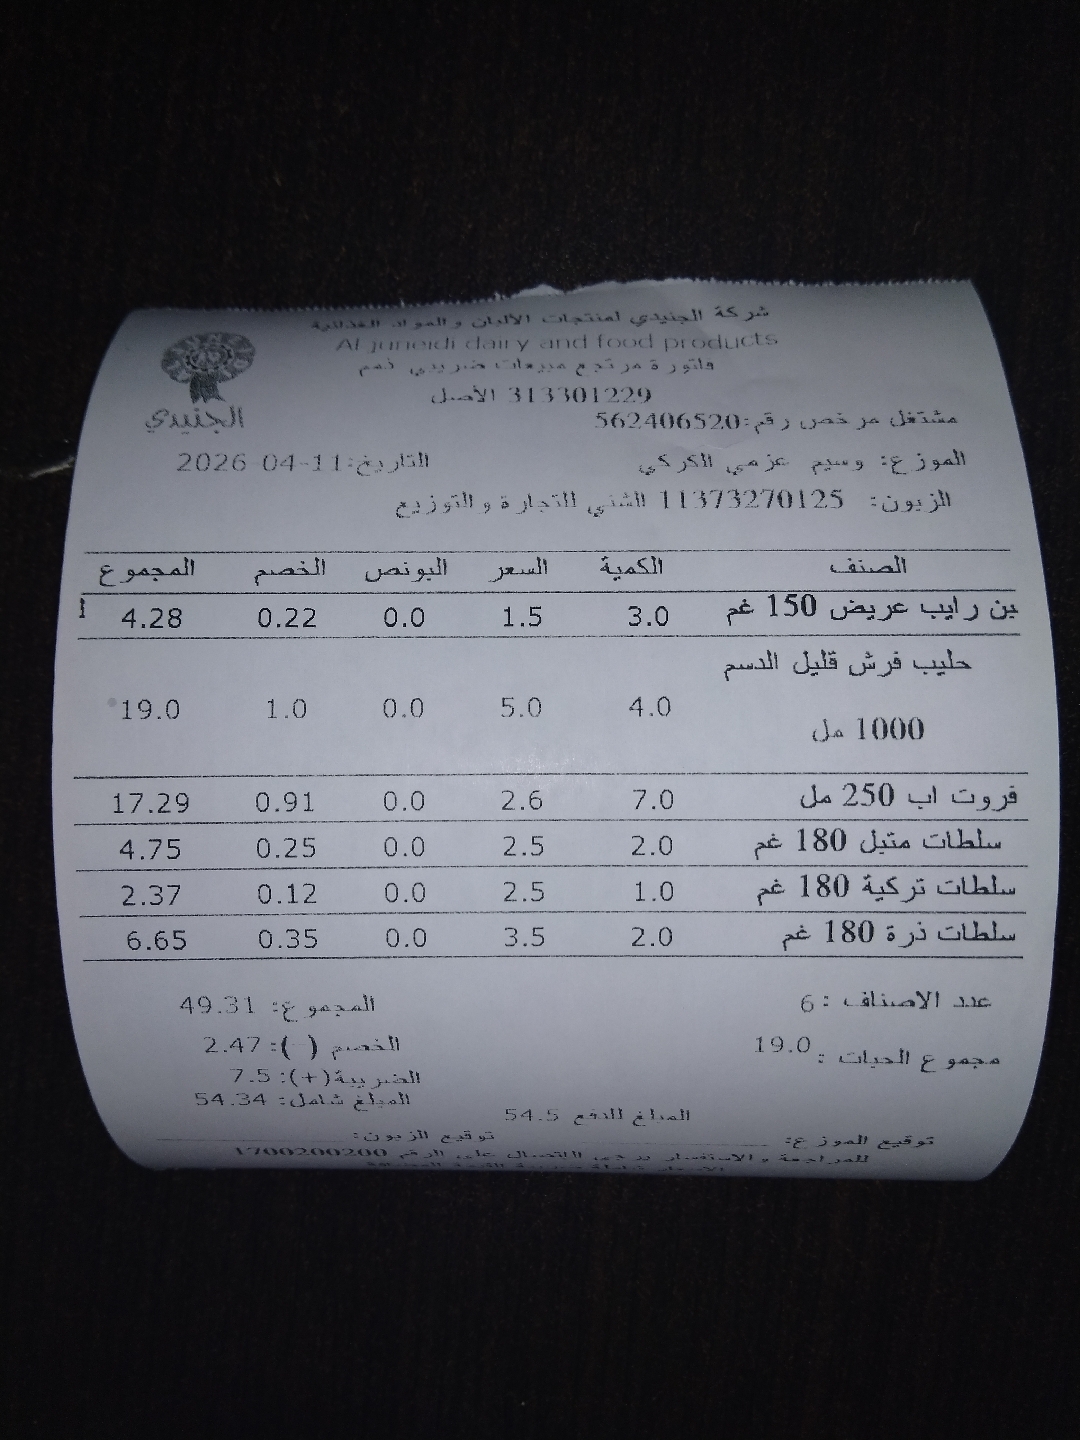 شركة الجنيدي لمنتجات الألبان والمواد الغذائية
Al juneidi dairy and food products
فاتورة مرتجع مبيعات ضريبي ذمم
313301229 الأصل
الجنيدي
مشتغل مرخص رقم:562406520
الموزع: وسيم عزمي الكركي التاريخ:2026-04-11
الزبون: 11373270125 الشني للتجارة و التوزيع
الصنف الكمية السعر البونص الخصم المجموع
بن رايب عريض 150 غم 3.0 1.5 0.0 0.22 4.28
حليب فرش قليل الدسم
1000 مل 4.0 5.0 0.0 1.0 19.0
فروت اب 250 مل 7.0 2.6 0.0 0.91 17.29
سلطات متبل 180 غم 2.0 2.5 0.0 0.25 4.75
سلطات تركية 180 غم 1.0 2.5 0.0 0.12 2.37
سلطات ذرة 180 غم 2.0 3.5 0.0 0.35 6.65
عدد الاصناف : 6 المجموع: 49.31
مجموع الحبات : 19.0 الخصم (-): 2.47
الضريبة(+): 7.5
المبلغ شامل: 54.34
المبلغ للدفع 54.5
توقيع الموزع: توقيع الزبون:
للمراجعة والاستفسار يرجى الاتصال على الرقم 1700200200